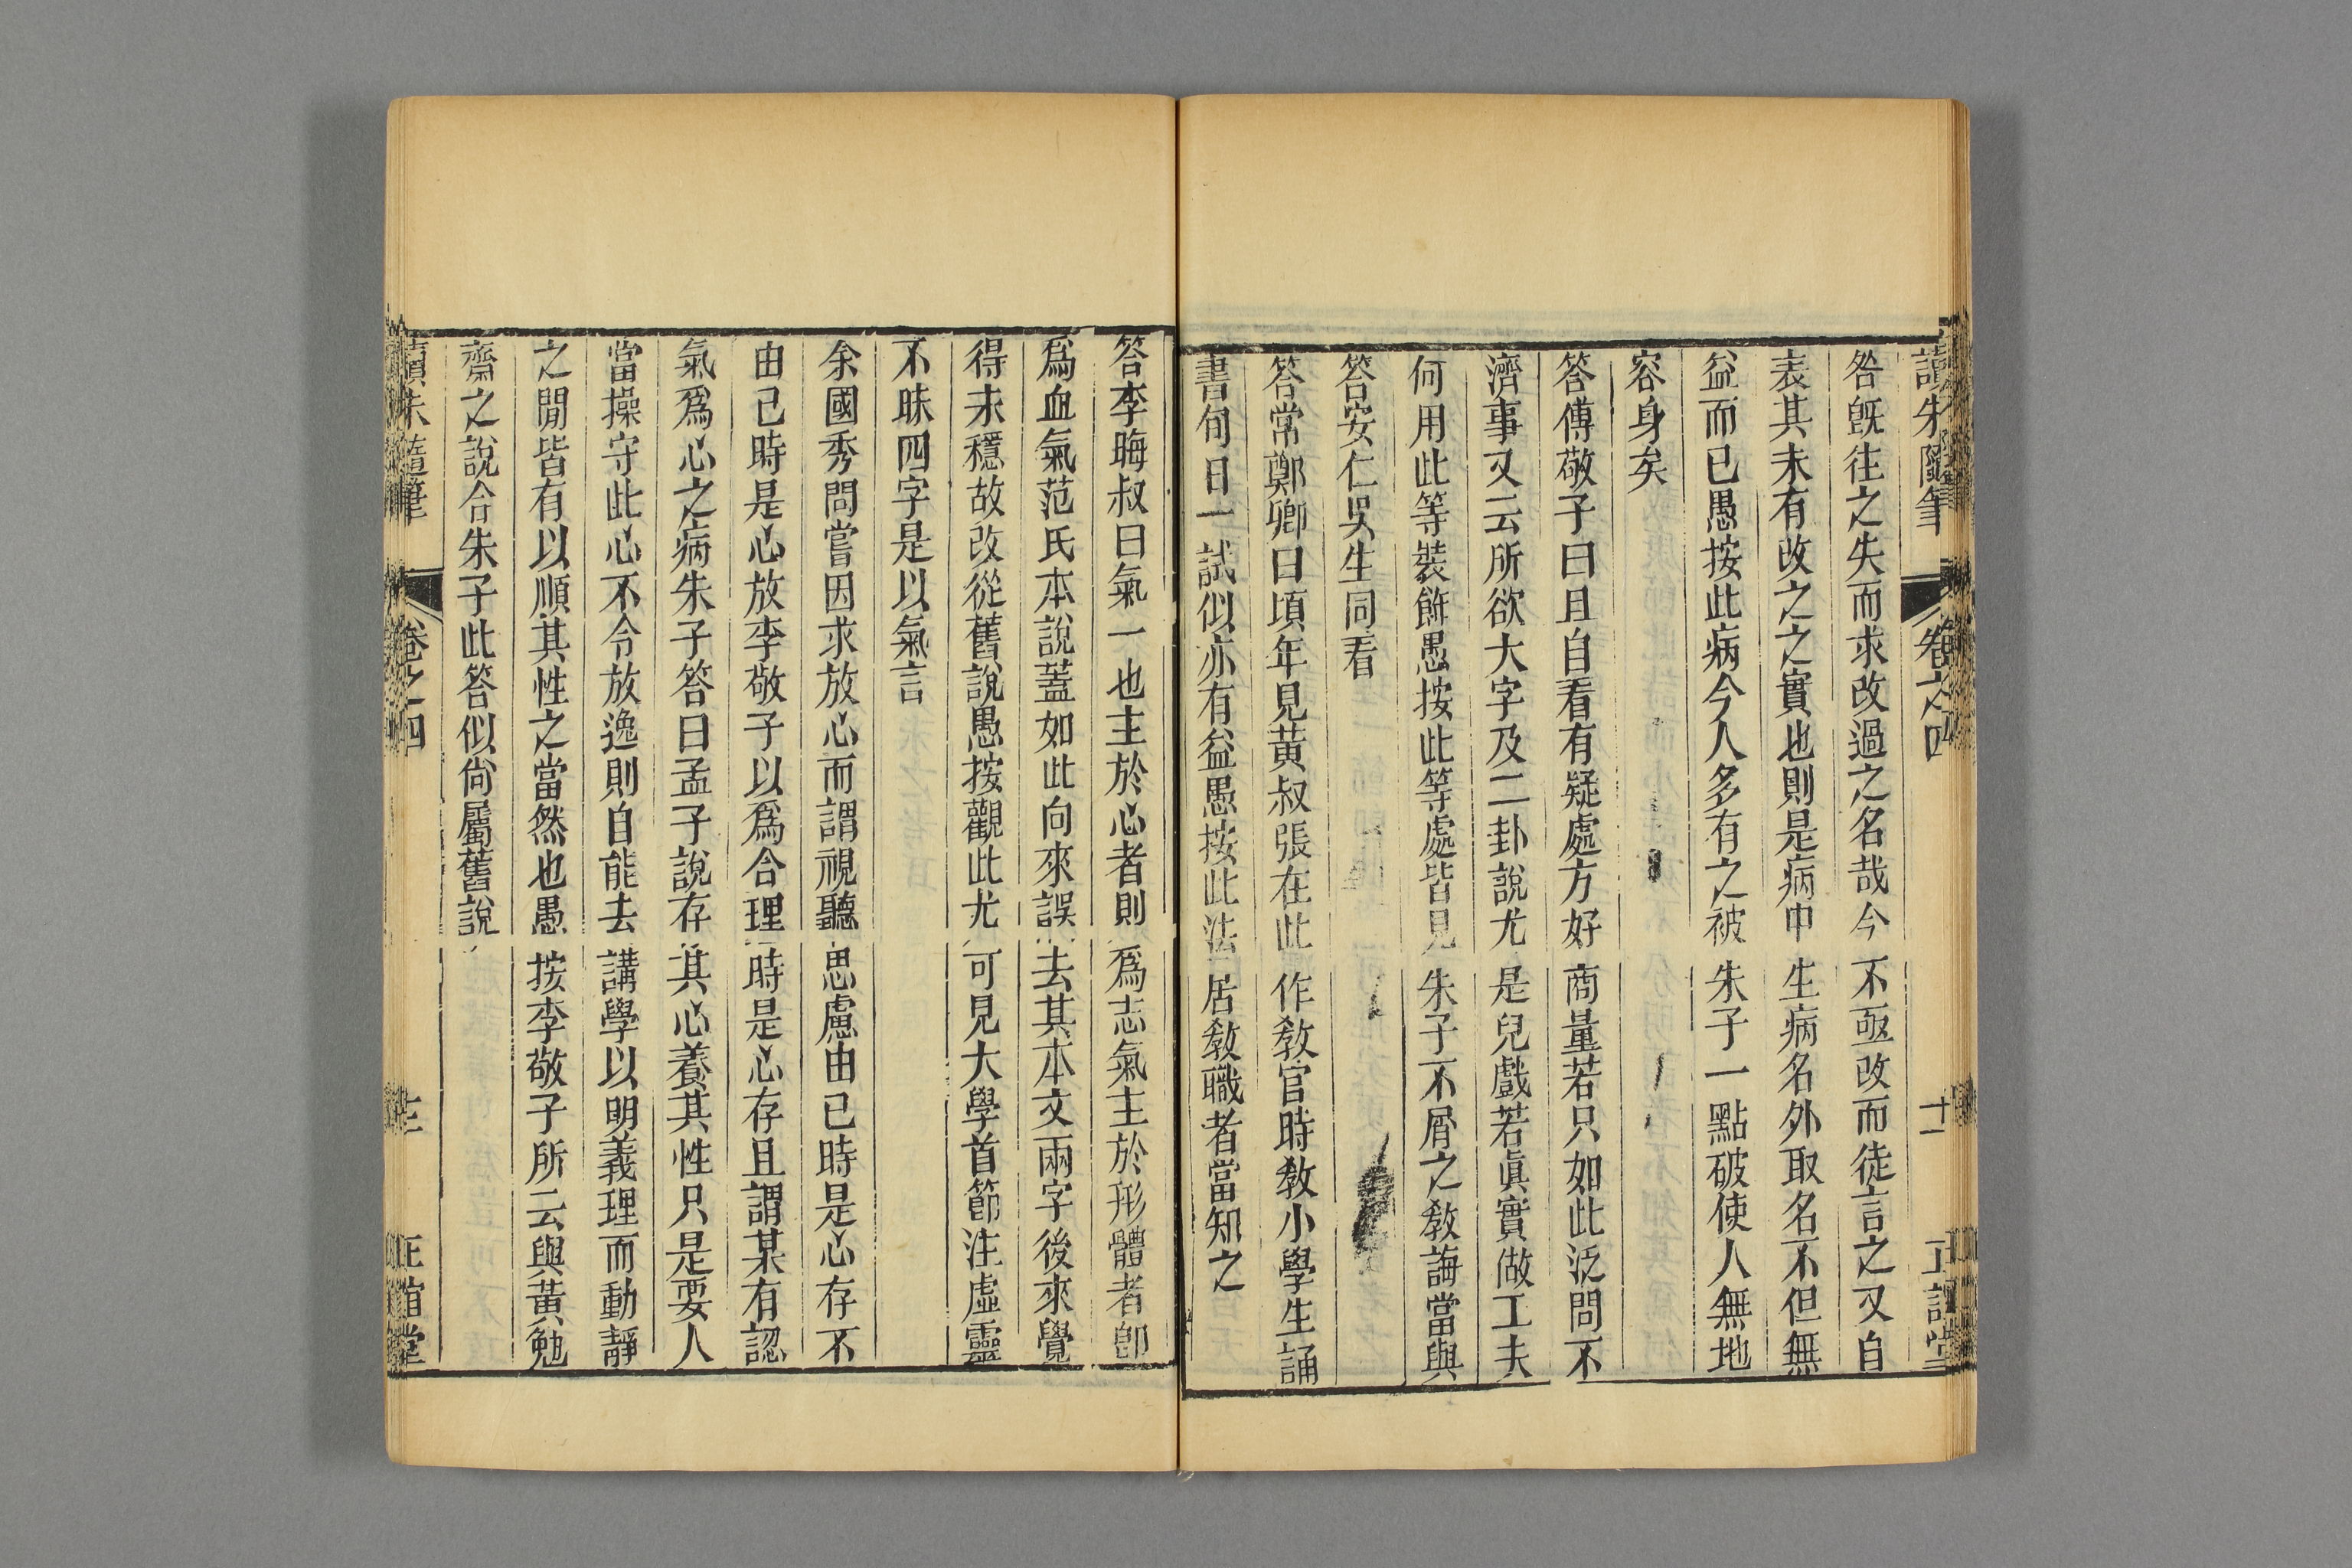 讀朱隨筆 卷之四 十一 正誼堂
咎旣往之失而求改過之名哉今不亟改而徒言之又自
表其未有改之之實也則是病中生病名外取名不但無
益而已愚按此病今人多有之被朱子一點破使人無地
容身矣
答傅敬子曰且自看有疑處方好商量若只如此泛問不
濟事又云所欲大字及二卦說尤是兒戲若眞實做工夫
何用此等裝餙愚按此等處皆見朱子不屑之敎誨當與
答安仁吳生同看
答常鄭卿曰頃年見黃叔張在此作敎官時敎小學生誦
書旬日一試似亦有益愚按此法居敎職者當知之
答李晦叔曰氣一也主於心者則爲志氣主於形體者卽
爲血氣范氏本說蓋如此向來誤去其本文兩字後來覺
得未穩故改從舊說愚按觀此尤可見大學首節注虛靈
不昧四字是以氣言
余國秀問嘗因求放心而謂視聽思慮由已時是心存不
由已時是心放李敬子以爲合理時是心存且謂某有認
氣爲心之病朱子答曰孟子說存其心養其性只是要人
當操守此心不令放逸則自能去講學以明義理而動靜
之閒皆有以順其性之當然也愚按李敬子所云與黃勉
齋之說合朱子此答似尙屬舊說
讀朱隨筆 卷之四 正誼堂